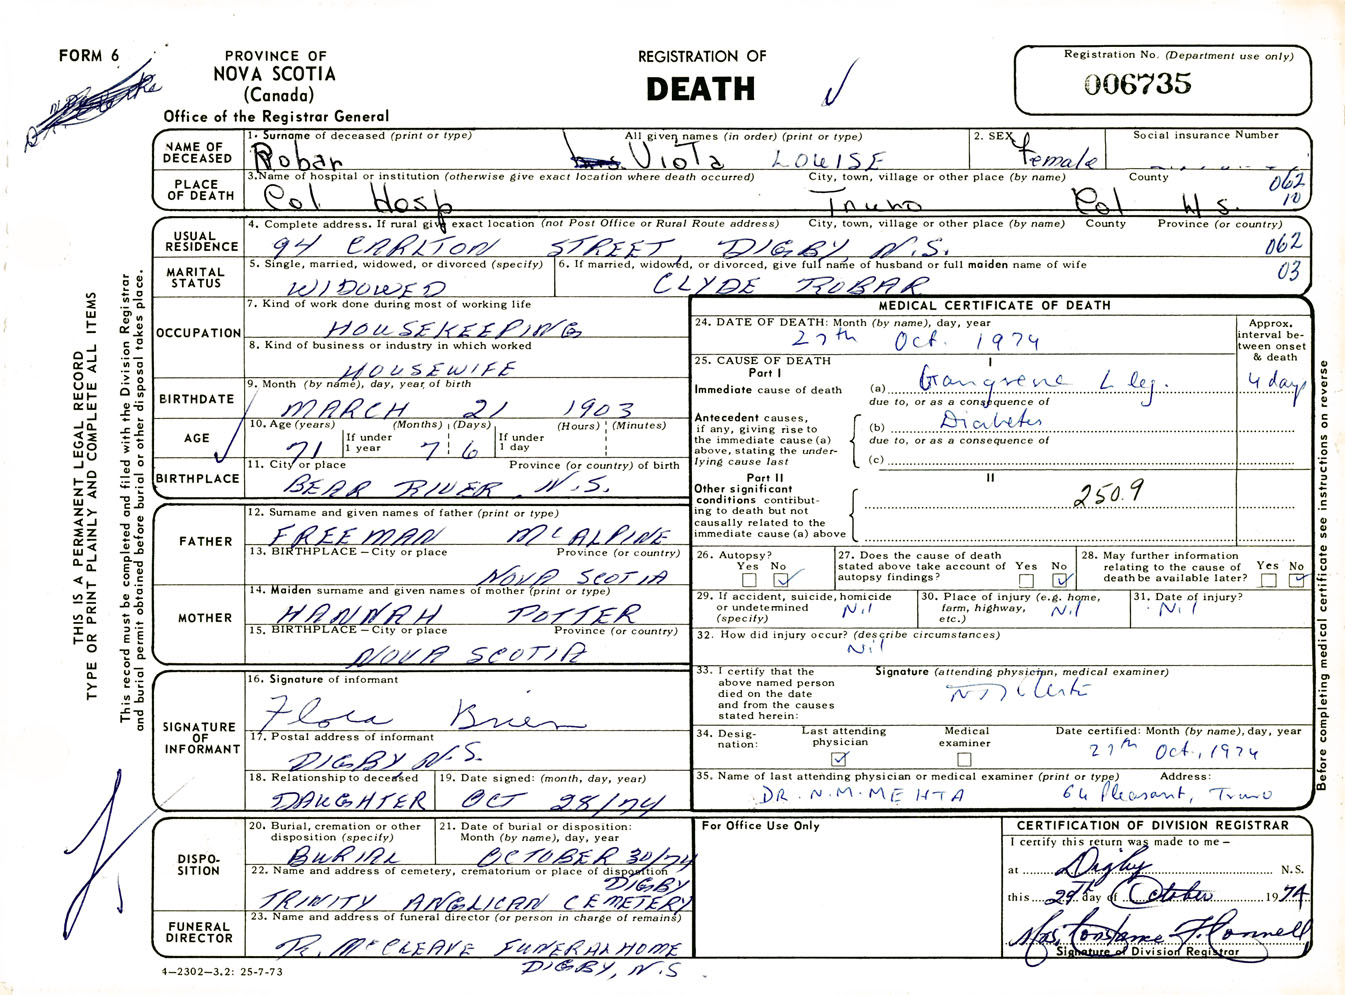 FORM 6
PROVINCE OF
NOVA SCOTIA
(Canada)
Office of the Registrar General
REGISTRATION OF
DEATH
Registration No. (Department use only)
006735
NAME OF DECEASED
1. Surname of deceased (print or type) All given names (in order) (print or type)
Robar Viola LOUISE
2. SEX
Female
Social insurance Number
PLACE OF DEATH
3. Name of hospital or institution (otherwise give exact location where death occurred) City, town, village or other place (by name) County
Col Hosp Truro Col N.S.
062
10
USUAL RESIDENCE
4. Complete address. If rural give exact location (not Post Office or Rural Route address) City, town, village or other place (by name) County Province (or country)
94 CARLTON STREET, DIGBY, N.S.
062
03
MARITAL STATUS
5. Single, married, widowed, or divorced (specify)
WIDOWED
6. If married, widowed, or divorced, give full name of husband or full maiden name of wife
CLYDE ROBAR
OCCUPATION
7. Kind of work done during most of working life
HOUSEKEEPING
8. Kind of business or industry in which worked
HOUSEWIFE
BIRTHDATE
9. Month (by name), day, year of birth
MARCH 21 1903
AGE
10. Age (years) (Months) (Days) (Hours) (Minutes)
If under 1 year
If under 1 day
71 7 6
BIRTHPLACE
11. City or place Province (or country) of birth
BEAR RIVER N.S.
FATHER
12. Surname and given names of father (print or type)
FREEMAN McALPINE
13. BIRTHPLACE – City or place Province (or country)
NOVA SCOTIA
MOTHER
14. Maiden surname and given names of mother (print or type)
HANNAH POTTER
15. BIRTHPLACE – City or place Province (or country)
NOVA SCOTIA
SIGNATURE OF INFORMANT
16. Signature of informant
Flora Brien
17. Postal address of informant
DIGBY N.S.
18. Relationship to deceased
DAUGHTER
19. Date signed: (month, day, year)
OCT 28/74
DISPOSITION
20. Burial, cremation or other disposition (specify)
BURIAL
21. Date of burial or disposition: Month (by name), day, year
OCTOBER 30/74
22. Name and address of cemetery, crematorium or place of disposition
DIGBY
TRINITY ANGLICAN CEMETERY
FUNERAL DIRECTOR
23. Name and address of funeral director (or person in charge of remains)
R. McCLEAVE FUNERAL HOME
DIGBY, N.S
4–2302–3.2: 25-7-73
MEDICAL CERTIFICATE OF DEATH
24. DATE OF DEATH: Month (by name), day, year
27th Oct. 1974
Approx. interval between onset & death
25. CAUSE OF DEATH
Part I
I
Immediate cause of death
(a) Gangrene L leg.
4 days
due to, or as a consequence of
Antecedent causes, if any, giving rise to the immediate cause (a) above, stating the underlying cause last
(b) Diabetes
due to, or as a consequence of
(c)
Part II
II
Other significant conditions contributing to death but not causally related to the immediate cause (a) above
250.9
26. Autopsy?
Yes No
27. Does the cause of death stated above take account of autopsy findings?
Yes No
28. May further information relating to the cause of death be available later?
Yes No
29. If accident, suicide, homicide or undetermined (specify)
Nil
30. Place of injury (e.g. home, farm, highway, etc.)
Nil
31. Date of injury?
Nil
32. How did injury occur? (describe circumstances)
Nil
33. I certify that the above named person died on the date and from the causes stated herein:
Signature (attending physician, medical examiner)
34. Designation:
Last attending physician
Medical examiner
Date certified: Month (by name), day, year
27th Oct, 1974
35. Name of last attending physician or medical examiner (print or type) Address:
DR. N.M. MEHTA 64 Pleasant, Truro
For Office Use Only
CERTIFICATION OF DIVISION REGISTRAR
I certify this return was made to me –
at Digby N.S.
this 29th day of October 1974
Mrs. Constance F. Connell
Signature of Division Registrar
THIS IS A PERMANENT LEGAL RECORD
TYPE OR PRINT PLAINLY AND COMPLETE ALL ITEMS
This record must be completed and filed with the Division Registrar
and burial permit obtained before burial or other disposal takes place.
Before completing medical certificate see instructions on reverse